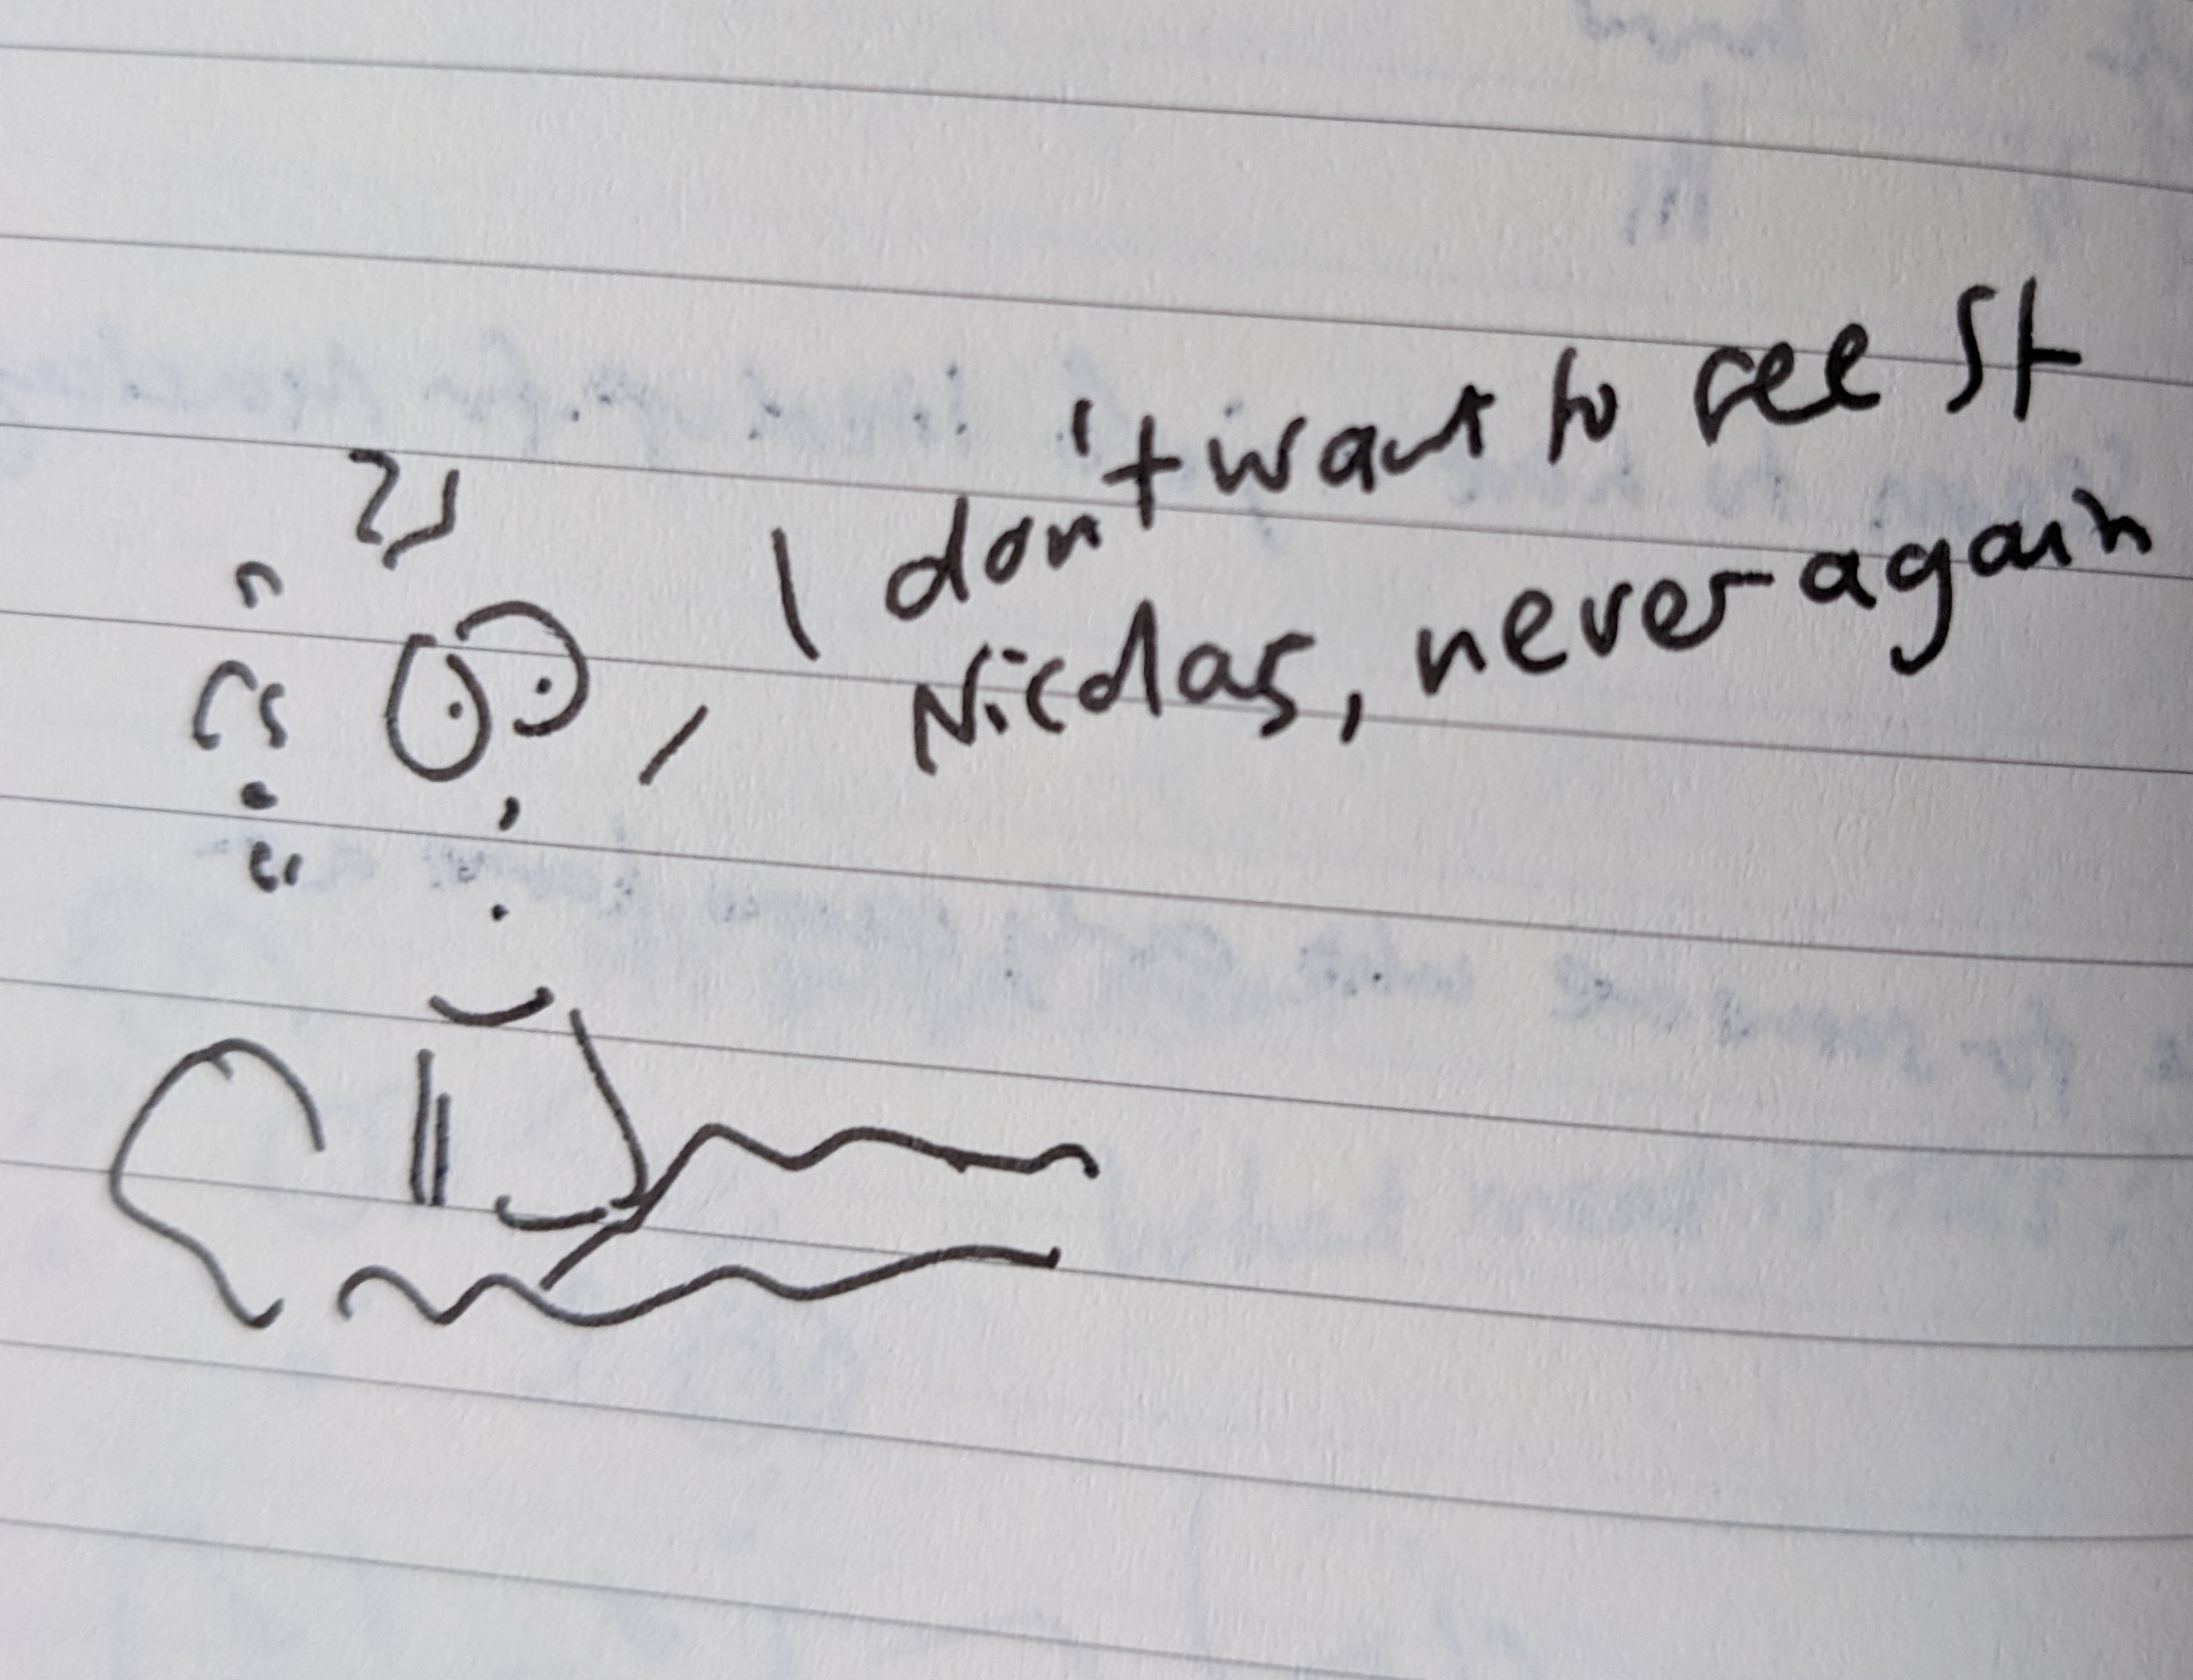 I don't want to see St
Nicolas, never again